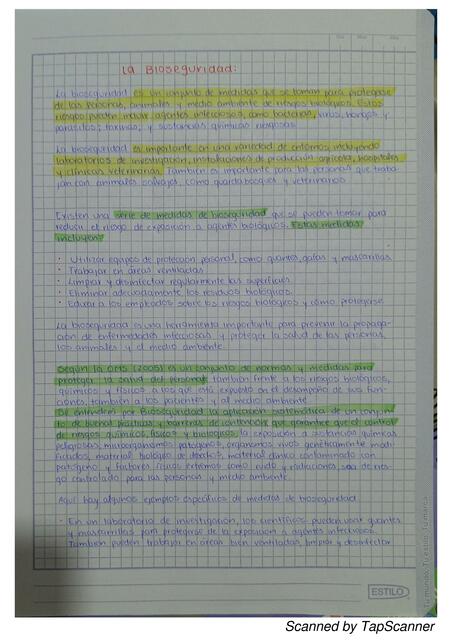 La Bioseguridad:
La bioseguridad es un conjunto de medidas que se toman para protegerse
de las personas, animales y medio ambiente de riesgos biológicos. Estos
riesgos pueden incluir agentes infecciosos, como bacterias, virus, hongos y
parásitos; toxinas, y sustancias químicas riesgosas.
La bioseguridad es importante en una variedad de entornos, incluyendo
laboratorios de investigación, instalaciones de producción agrícola, hospitales
y clínicas veterinarias. También es importante para las personas que traba
jan con animales salvajes, como guardabosques y veterinarios
Existen una serie de medidas de bioseguridad que se pueden tomar para
reducir el riesgo de exposición a agentes biológicos. Estas medidas
incluyen:
· Utilizar equipos de protección personal, como guantes, gafas y mascarillas
· Trabajar en áreas ventiladas
· Limpiar y desinfectar regularmente las superficies
· Eliminar adecuadamente los residuos biológicos
· Educar a los empleados sobre los riesgos biológicos y cómo protegerse
La bioseguridad es una herramienta importante para prevenir la propaga-
ción de enfermedades infecciosas y proteger la salud de las personas,
los animales y el medio ambiente.
Según la OMS (2005) es un conjunto de normas y medidas para
proteger la salud del personal, también frente a los riesgos biológicos,
químicos y físicos a los que está expuesto en el desempeño de sus fun-
ciones, también a los pacientes y al medio ambiente.
De entendem por Bioseguridad la aplicación sistemática de un conjun
to de buenas prácticas y barreras de contención que garantice que el control
de riesgos químicos, físicos y biológicos, la exposición a sustancias químicas
peligrosas, microorganismos patógenos, organismos vivos genéticamente modi
ficados, material biológico de derechos, material clínico contaminado con
patógeno y factores físicos extremos como ruido y radiaciones, sea de ries-
go controlado para las personas y medio ambiente.
Aquí hay algunos ejemplos específicos de medidas de bioseguridad
· En un laboratorio de investigación, los científicos pueden usar guantes
y mascarillas para protegerse de la exposición a agentes infecciosos.
También pueden trabajar en áreas bien ventiladas, limpiar y desinfectar
ESTILO
Tu mundo, Tu estilo, Tu marca
Scanned by TapScanner